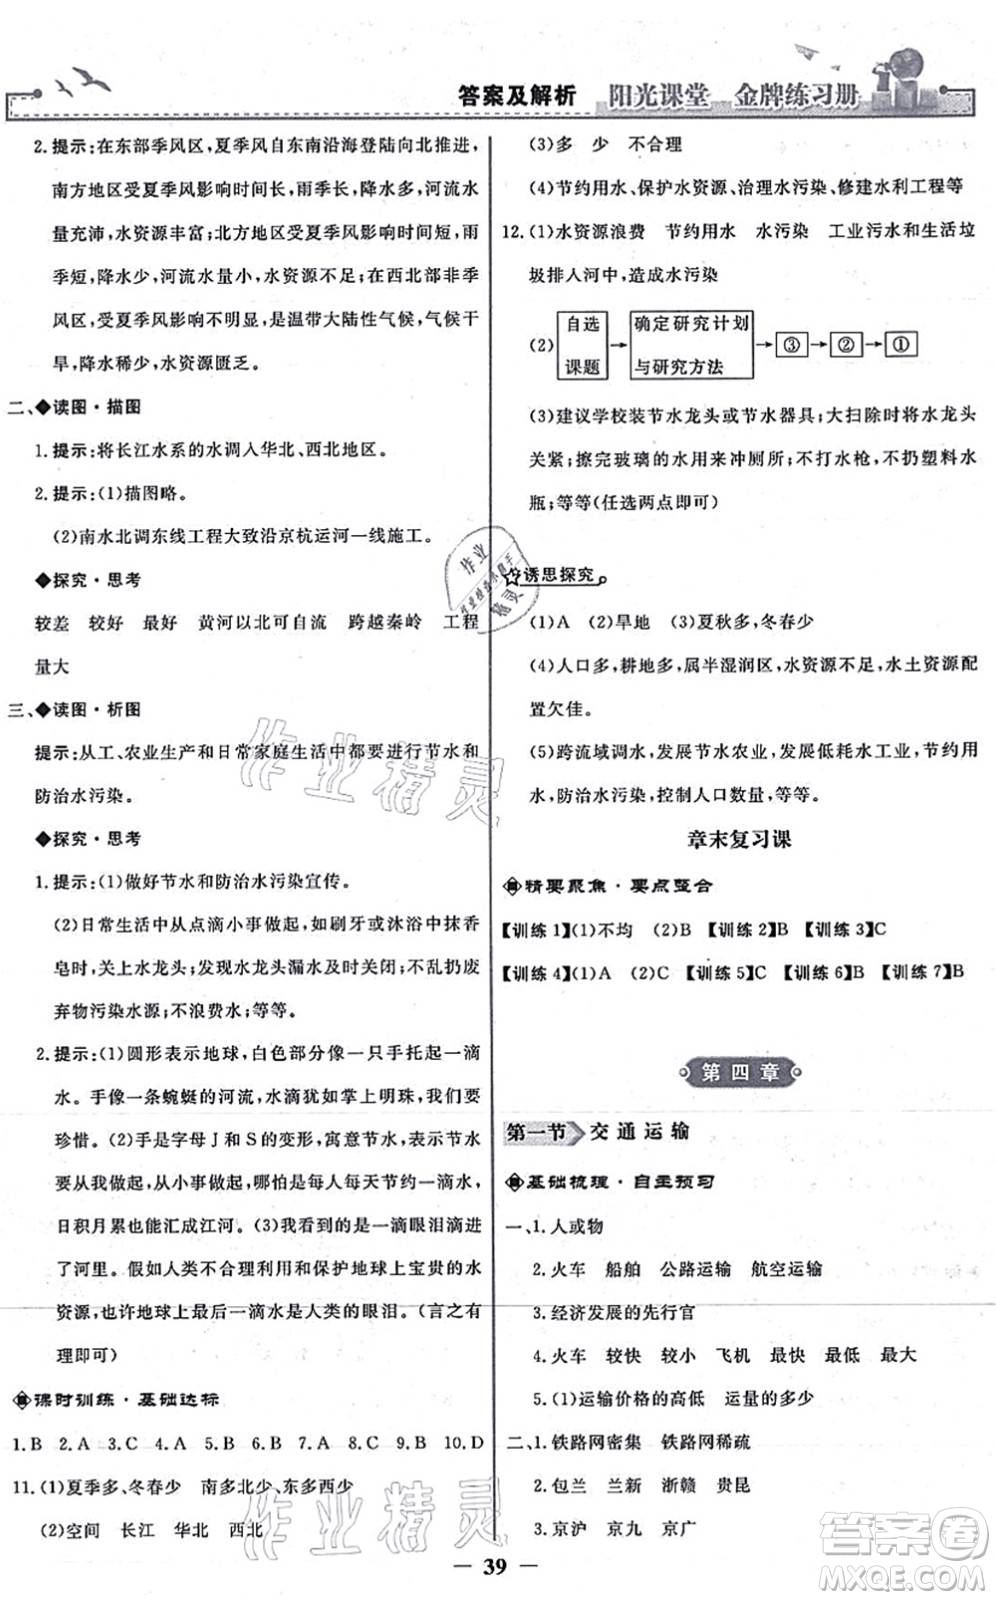 答案及解析 阳光课堂 金牌练习册
2.提示:在东部季风区,夏季风自东南沿海登陆向北推进,
南方地区受夏季风影响时间长,雨季长,降水多,河流水
量充沛,水资源丰富;北方地区受夏季风影响时间短,雨
季短,降水少,河流水量小,水资源不足;在西北部非季
风区,受夏季风影响不明显,是温带大陆性气候,气候干
旱,降水稀少,水资源匮乏。
二、◆读图·描图
1.提示:将长江水系的水调入华北、西北地区。
2.提示:(1)描图略。
(2)南水北调东线工程大致沿京杭运河一线施工。
◆探究·思考
较差 较好 最好 黄河以北可自流 跨越秦岭 工程
量大
三、◆读图·析图
提示:从工、农业生产和日常家庭生活中都要进行节水和
防治水污染。
◆探究·思考
1.提示:(1)做好节水和防治水污染宣传。
(2)日常生活中从点滴小事做起,如刷牙或沐浴中抹香
皂时,关上水龙头;发现水龙头及时关闭;不乱扔废
弃物污染水源;不浪费水;等等。
2.提示:(1)圆形表示地球,白色部分像一只手托起一滴
水。手像一条蜿蜒的河流,水滴像手中的明珠,我们要
珍惜。(2)手是字母J和S的变形,寓意节水,表示节水
要从我做起,从小事做起,哪怕是每人每天节约一滴水,
日积月累也能汇成江河。(3)我看到的是一滴眼泪滴进
了河里。假如人类不合理利用和保护地球上宝贵的水
资源,也许地球上最后一滴水是人类的眼泪。(言之有
理即可)
课时训练·基础达标
1.B 2.A 3.C 4.A 5.C 6.B 7.B 8.A 9.B 10.D
11.(1)夏季多、冬春少 南多北少、东多西少
(2)空间 长江 华北 西北
(3)多 少 不合理
(4)节约用水、保护水资源、治理水污染、修建水利工程等
12.(1)水资源浪费 节约用水 水污染 工业污水和生活垃
圾排入河中,造成水污染
(2) 自选课题 → 确定研究计划与研究方法 → ③ → ② → ①
(3)建议学校装节水龙头或节水器具;大扫除时将水龙头
关紧;擦完玻璃的水用来冲厕所;不打水枪,不扔塑料水
瓶;等等(任选两点即可)
诱思探究
(1)A (2)旱地 (3)夏秋多,冬春少
(4)人口多,耕地多,属半湿润区,水资源不足,水土资源配
置欠佳。
(5)跨流域调水,发展节水农业,发展低耗水工业,节约用
水,防治水污染,控制人口数量,等等。
章末复习课
精要聚焦·要点整合
【训练1】(1)不均 (2)B 【训练2】B 【训练3】C
【训练4】(1)A (2)C 【训练5】C 【训练6】B 【训练7】B
第四章
第一节 交通运输
基础梳理·自主预习
一、1.人或物
2.火车 船舶 公路运输 航空运输
3.经济发展的先行官
4.火车 较快 较小 飞机 最快 最低 最大
5.(1)运输价格的高低 运量的多少
二、1.铁路网密集 铁路网稀疏
2.包兰 兰新 浙赣 贵昆
3.京沪 京九 京广
— 39 —
作业精灵
作业精灵
答案卷
MXQE.COM